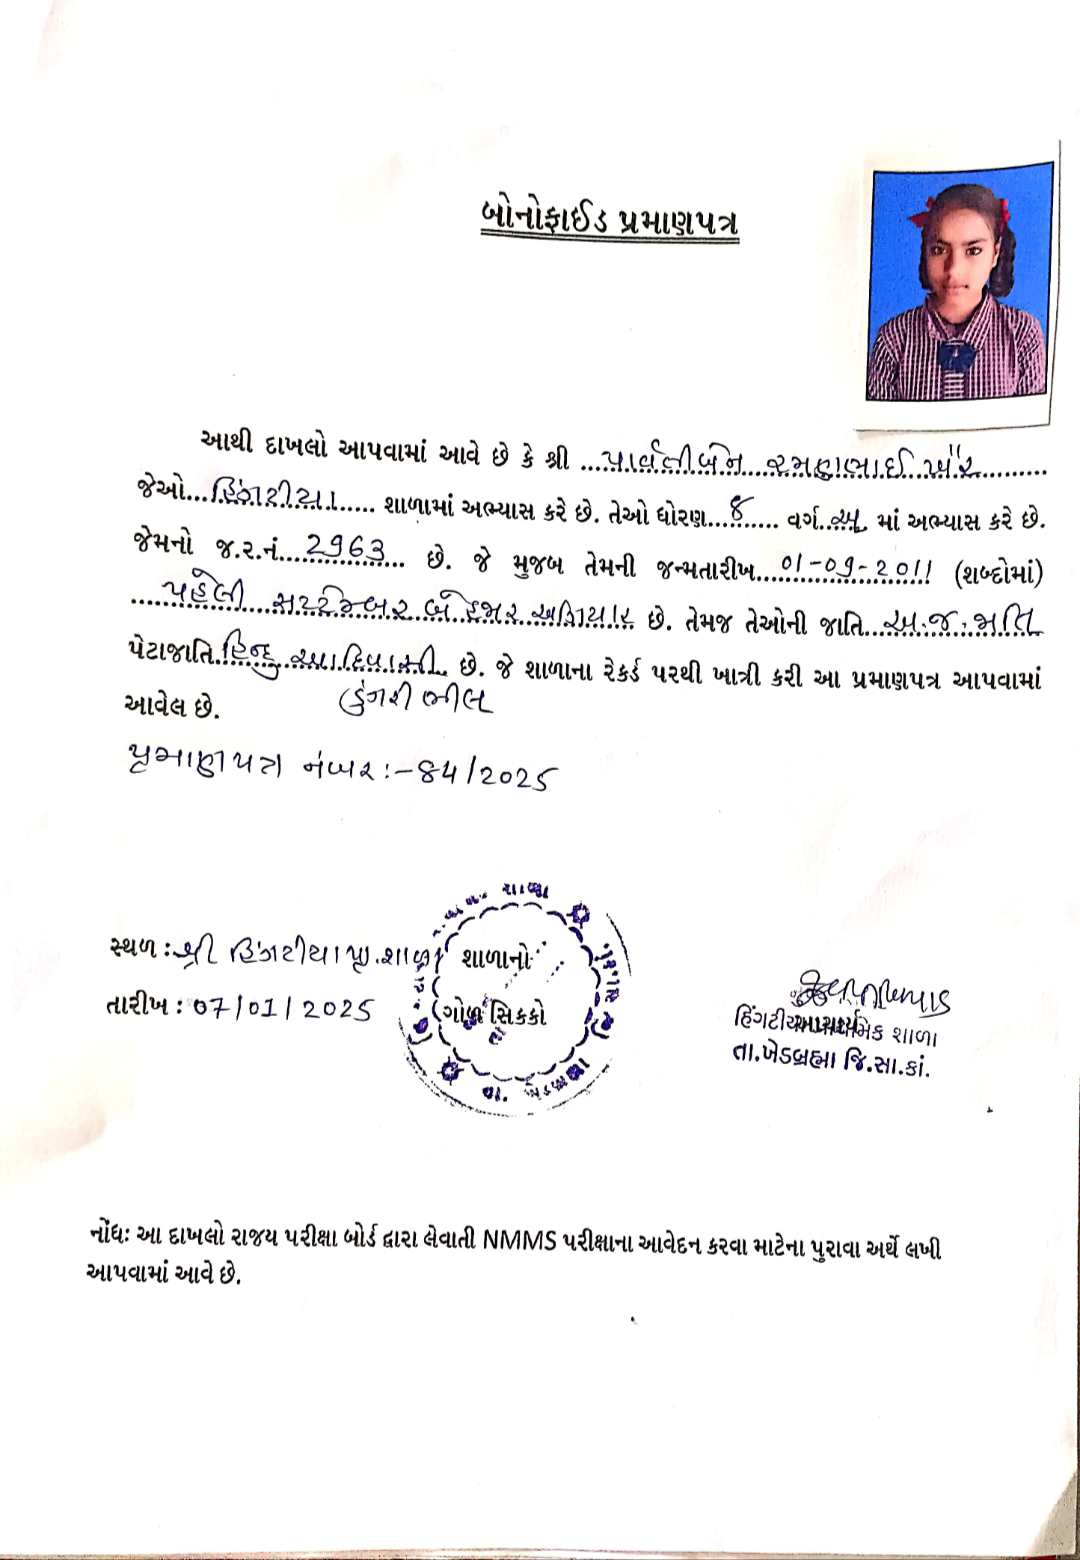 બોનોફાઈડ પ્રમાણપત્ર
આથી દાખલો આપવામાં આવે છે કે શ્રી ....પાર્વતીબેન રમણભાઈ ખૈર..........
જેઓ...હિંગટીયા...... શાળામાં અભ્યાસ કરે છે. તેઓ ધોરણ....૮...... વર્ગ..અ.. માં અભ્યાસ કરે છે.
જેમનો જ.ર.નં....2963... છે. જે મુજબ તેમની જન્મતારીખ...01-09-2011 (શબ્દોમાં)
.....પહેલી સપ્ટેમ્બર બે હજાર અગિયાર છે. તેમજ તેઓની જાતિ...અ.જ.જાતિ
પેટાજાતિ.હિન્દુ આદિવાસી.. છે. જે શાળાના રેકર્ડ પરથી ખાત્રી કરી આ પ્રમાણપત્ર આપવામાં
ડુંગરી ભીલ
આવેલ છે.
પ્રમાણપત્ર નંબર :- 84/2025
સ્થળ : શ્રી હિંગટીયા પ્રા.શાળા
તારીખ : 07/01/2025
શાળાનો
ગોળ સિક્કો
આચાર્ય
હિંગટીયા પ્રાથમિક શાળા
તા.ખેડબ્રહ્મા જિ.સા.કાં.
નોંધઃ આ દાખલો રાજય પરીક્ષા બોર્ડ દ્વારા લેવાતી NMMS પરીક્ષાના આવેદન કરવા માટેના પુરાવા અર્થે લખી
આપવામાં આવે છે.